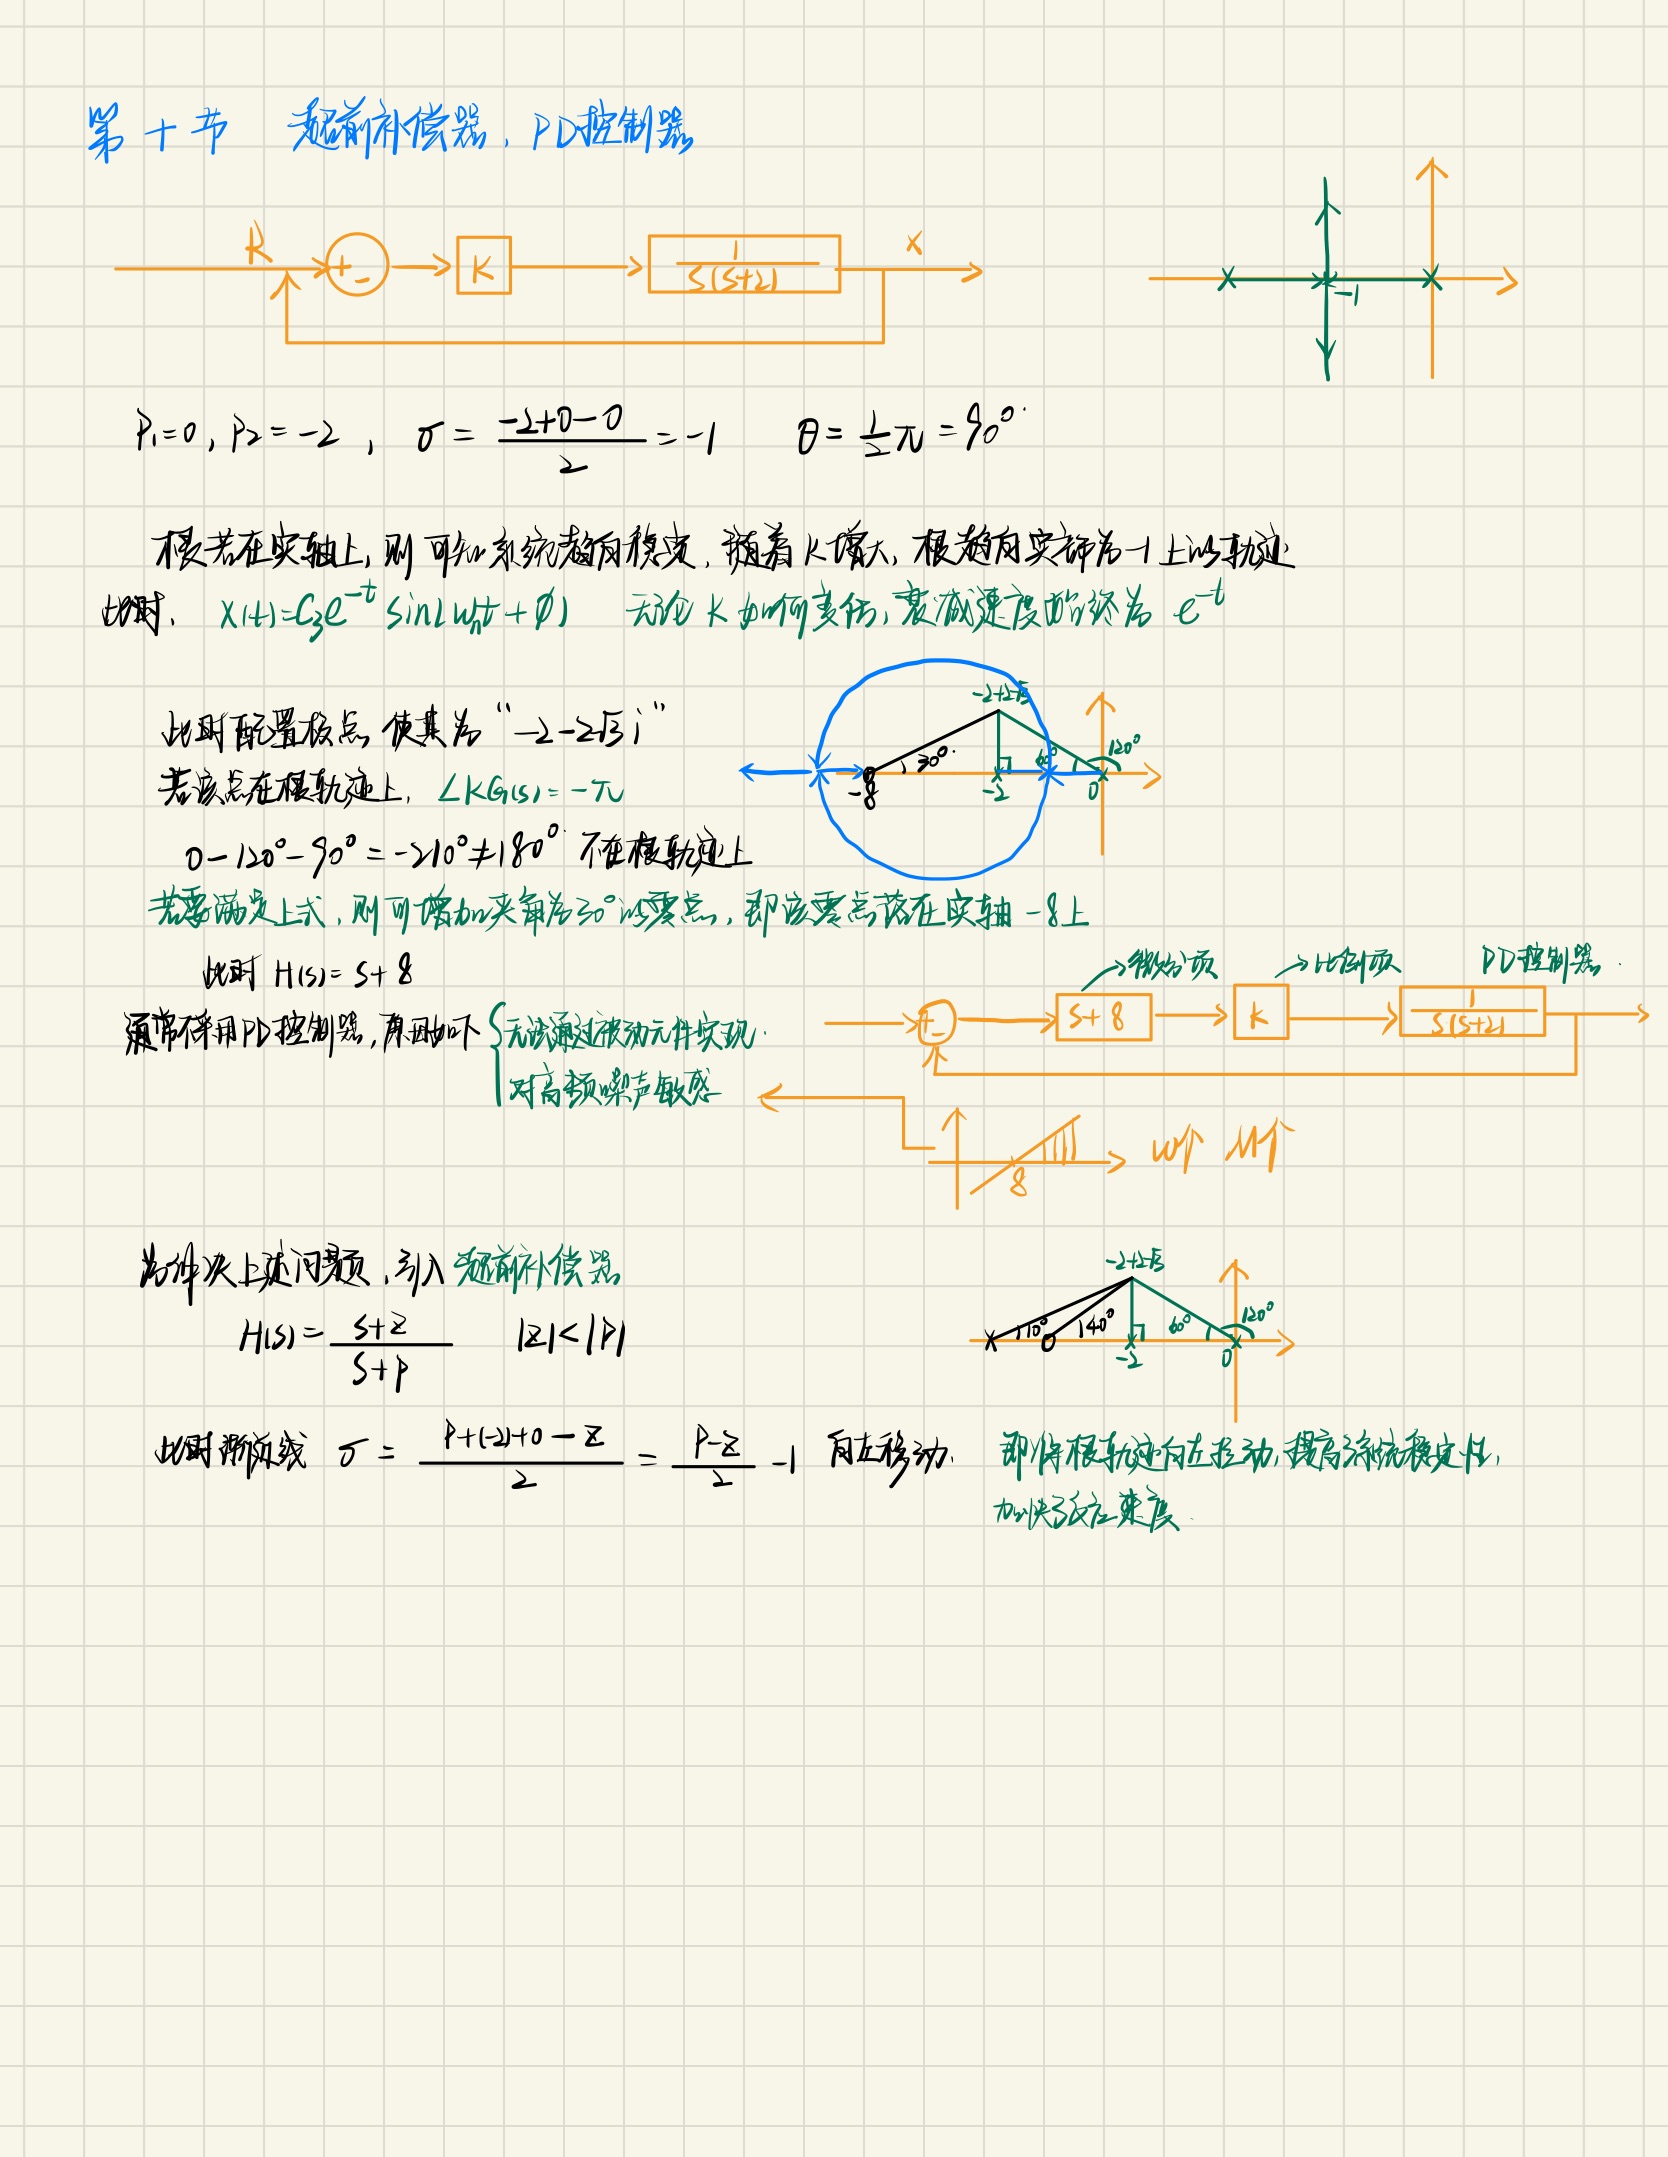 第十节 超前补偿器、PD控制器
R + - K 1/S(S+2) X
-1
P₁=0, P₂=-2, σ = (-2+0-0)/2 = -1 θ = 1/2 π = 90°
根若在实轴上,则可知系统趋向稳定,随着K增大,根趋向实部为-1上的轨迹
此时, X(t)=C₃e^(-t) sin(ωnt+φ) 无论K如何变化,衰减速度始终为 e^(-t)
-2+2√3 30° 60° 120° -8 -2 0
此时配置极点 使其为“-2-2√3i”
若该点在根轨迹上, ∠KG(s)=-π
0-120°-90°=-210°≠180° 不在根轨迹上
若要满足上式,则可增加夹角为30°的零点,即该零点落在实轴 -8上
此时 H(s)=s+8
→微分项 →比例项 PD控制器.
+ - S+8 K 1/S(S+2)
通常不采用PD控制器,原因如下 { 无法通过被动元件实现.
对高频噪声敏感
8 ω↑ M↑
为解决上述问题,引入 超前补偿器
-2+2√3 10° 40° 60° 120° -2 0
H(s)= (s+z)/(s+p) |z|<|p|
此时渐近线 σ = (P+(-2)+0-z)/2 = (P-z)/2 -1 向左移动. 即将根轨迹向左移动,提高系统稳定性,
加快反应速度.